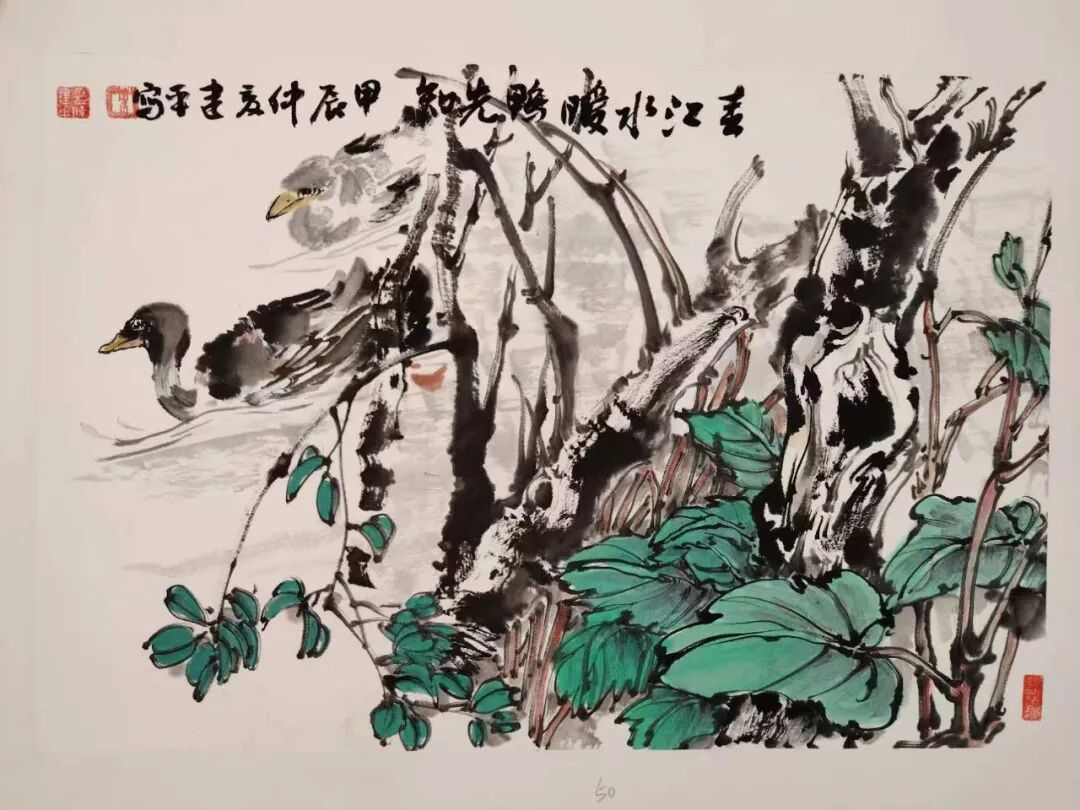 春江水暖鸭先知 甲辰仲夏建平写
50